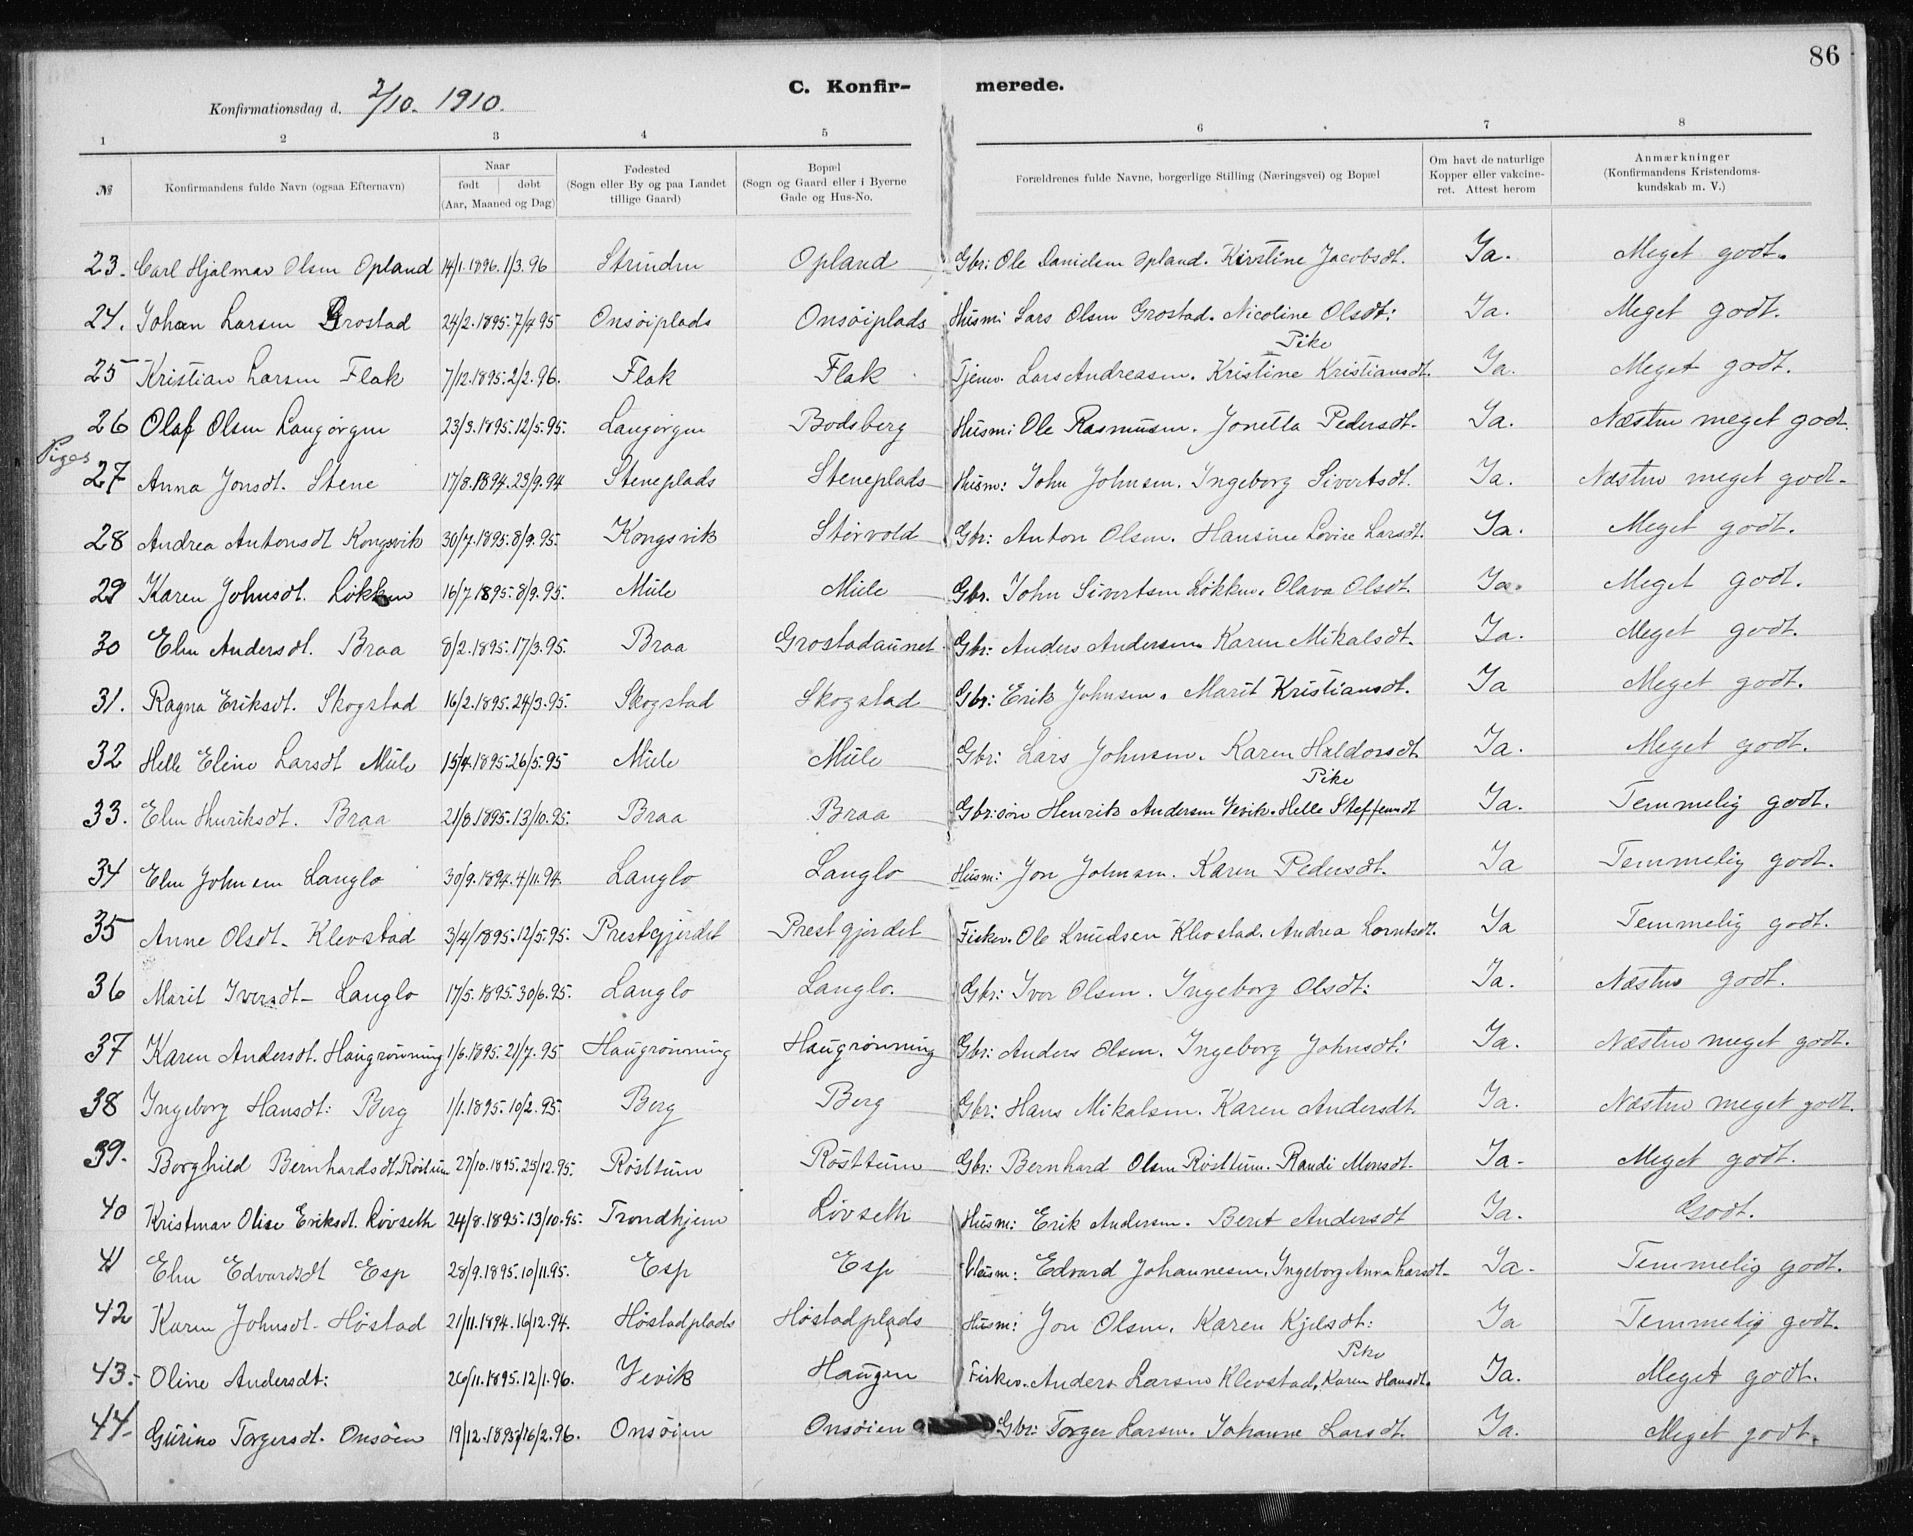 86
C. Konfir- merede.
Konfirmationsdag d. 2/10. 1910.
1 2 3 4 5 6 7 8
№ Konfirmandens fulde Navn (ogsaa Efternavn) Naar født døbt (Aar, Maaned og Dag) Fødested (Sogn eller By og paa Landet tillige Gaard) Bopæl (Sogn og Gaard eller i Byerne Gade og Hus-No. Forældrenes fulde Navne, borgerlige Stilling (Næringsvei) og Bopæl Om havt de naturlige Kopper eller vakcineret. Attest herom Anmærkninger (Konfirmandens Kristendomskundskab m. V.)
23. Carl Hjalmar Olsen Opland 14/1.1896. 1/3.96 Strinden Opland Gbr: Ole Danielsen Opland. Kirstine Jacobsdt. Ja. Meget godt.
24. Johan Larsen Grostad 24/2.1895. 7/4 95 Onsøiplads Onsøiplads Husm: Lars Olsen Grostad. Nicoline Olsdt: Ja. Meget godt.
Pike
25 Kristian Larsen Flak 7/12.1895. 2/2.96. Flak Flak Tjener Lars Andreasen. Kristine Kristiansdt. Ja. Meget godt.
26 Olaf Olsen Langørgen 23/3.1895. 12/5.95. Langørgen Bodsberg Husm: Ole Rasmusen. Jonetta Pedersdt. Ja. Næsten meget godt.
Piger
27 Anna Jonsdt. Stene 17/8.1894. 23/9.94 Steneplads Steneplads Husm: John Johnsen. Ingeborg Sivertsdt. Ja. Næsten meget godt.
28 Andrea Antonsdt Kongsvik 30/7.1895. 8/9.95. Kongsvik Størvold Gbr: Anton Olsen. Hansine Lovise Larsdt. Ja. Meget godt.
29 Karen Johnsdt. Løkken 16/7 1895. 8/9.95. Mule Mule Gbr. John Sivertsen Løkken. Olava Olsdt. Ja. Meget godt.
30 Elen Andersdt. Braa 8/2.1895. 17/3.95. Braa Grostadaunet Gbr: Anders Andersen. Karen Mikalsdt. Ja. Meget godt.
31. Ragna Eriksdt. Skogstad 16/2.1895. 24/3.95. Skogstad Skogstad Gbr: Erik Johnsen. Marit Kristiansdt. Ja Meget godt.
32 Helle Eline Larsdt Mule 15/4.1895. 26/5.95 Mule Mule Gbr: Lars Johnsen. Karen Haldorsdt. Ja. Meget godt.
Pike
33. Elen Henriksdt. Braa 21/8.1895. 13/10.95. Braa Braa Gbr:søn Henrik Andersen Vevik. Helle Steffensdt Ja. Temmelig godt.
34 Elen Johnsen Langlo 30/9.1894. 4/11.94. Langlo Langlo Husm: Jon Johnsen. Karen Pedersdt. Ja Temmelig godt.
35 Anne Olsdt. Klevstad 3/4/1895. 12/5.95. Prestgjerdet Prestgjerdet Fisker. Ole Knudsen Klevstad. Andrea Lorntsdt. Ja Temmelig godt.
36 Marit Iversdt. Langlo 17/5.1895. 30/6.95. Langlo Langlo. Gbr: Iver Olsen. Ingeborg Olsdt: Ja. Næsten godt.
37 Karen Andersdt. Haugrønning 1/6.1895. 21/7.95 Haugrønning Haugrønning Gbr: Anders Olsen. Ingeborg Johnsdt: Ja. Næsten meget godt.
38 Ingeborg Hansdt: Berg 1/1.1895. 10/2.95. Berg Berg Gbr: Hans Mikalsen. Karen Andersdt. Ja. Næsten meget godt.
39. Borghild Bernhardsdt. Røstum 27/10.1895. 25/12.95. Røsttum Røsttum Gbr: Bernhard Olsen Røsttum. Randi Monsdt. Ja. Meget godt.
40 Olise Eriksdt. Løvseth 24/8.1895. 13/10.95. Trondhjem Løvseth Husm: Erik Andersen. Beret Andersdt Ja. Godt.
41 Elen Edvardsdt Esp 28/9.1895. 10/11.95. Esp Esp Husm: Edvard Johannesen. Ingeborg Anna Larsdt. Ja. Temmelig godt.
42 Karen Johnsdt. Høstad 21/11.1894. 16/12.94. Høstadplads Høstadplads Husm: Jon Olsen. Karen Kjelsdt: Ja Temmelig godt.
Pike
43. Oline Andersdt: 26/11.1895. 12/1.96. Vevik Haugen Fisker. Anders Larsen Klevstad. Karen Hansdt. Ja. Meget godt.
44. Gurine Torgersdt. Onsøien 19/12.1895. 16/2.96. Onsøien Onsøien Gbr: Torger Larsen. Johanne Larsdt. Ja. Meget godt.